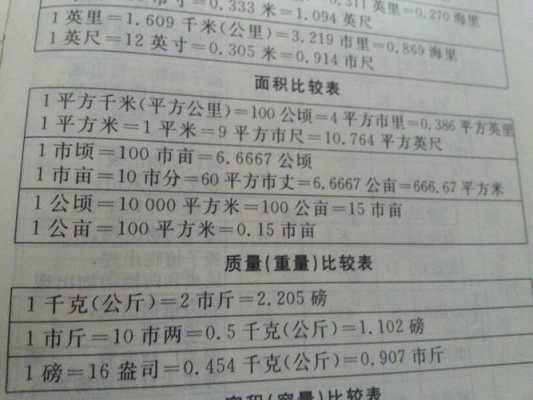 寸=0.333 米=1.094 英尺 0.311 英里=0.270 海里
1 英里=1.609 千米(公里)=3.219 市里=0.869 海里
1 英尺=12 英寸=0.305 米=0.914 市尺
面积比较表
1 平方千米(平方公里)=100 公顷=4 平方市里=0.386 平方英里
1 平方米=1 平米=9 平方市尺=10.764 平方英尺
1 市顷=100 市亩=6.6667 公顷
1 市亩=10 市分=60 平方市丈=6.6667 公亩=666.67 平方米
1 公顷=10 000 平方米=100 公亩=15 市亩
1 公亩=100 平方米=0.15 市亩
质量(重量)比较表
1 千克(公斤)=2 市斤=2.205 磅
1 市斤=10 市两=0.5 千克(公斤)=1.102 磅
1 磅=16 盎司=0.454 千克(公斤)=0.907 市斤
容积(容量)比较表